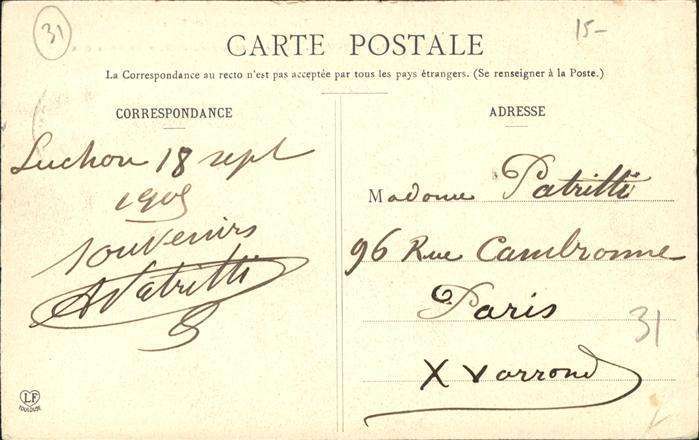 31
15-
CARTE POSTALE
La Correspondance au recto n'est pas acceptée par tous les pays étrangers. (Se renseigner à la Poste.)
CORRESPONDANCE
Luchon 18 sept
souvenirs
APatritti
ADRESSE
Madame Patritti
96 Rue Cambronne
Paris
31
X Varrond
LF
TOULOUSE